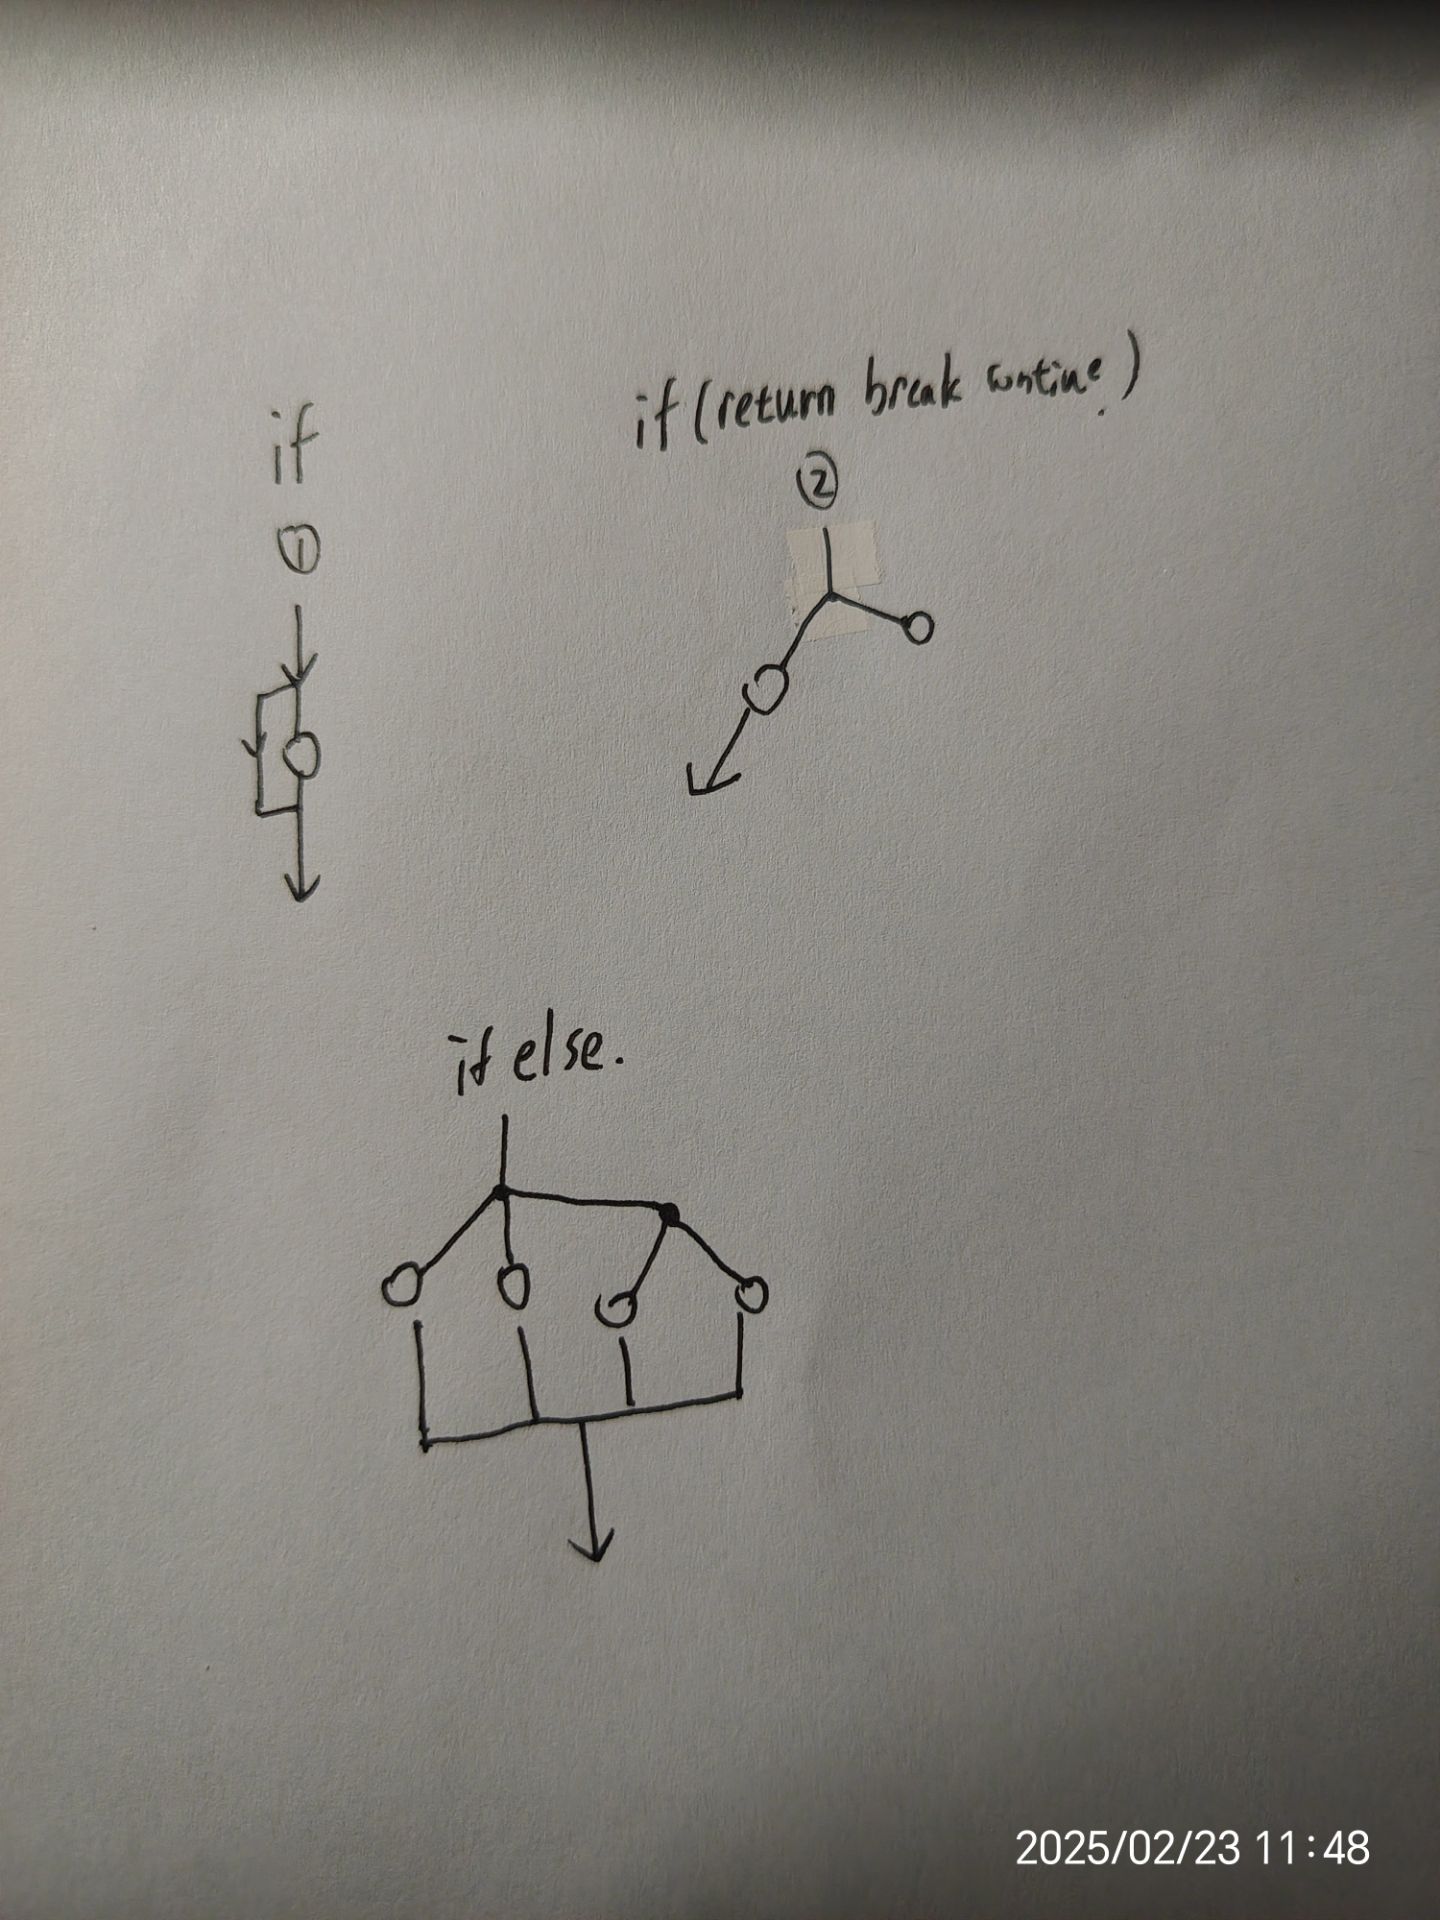 if
①
if (return break continue)
②
if else.
2025/02/23 11:48